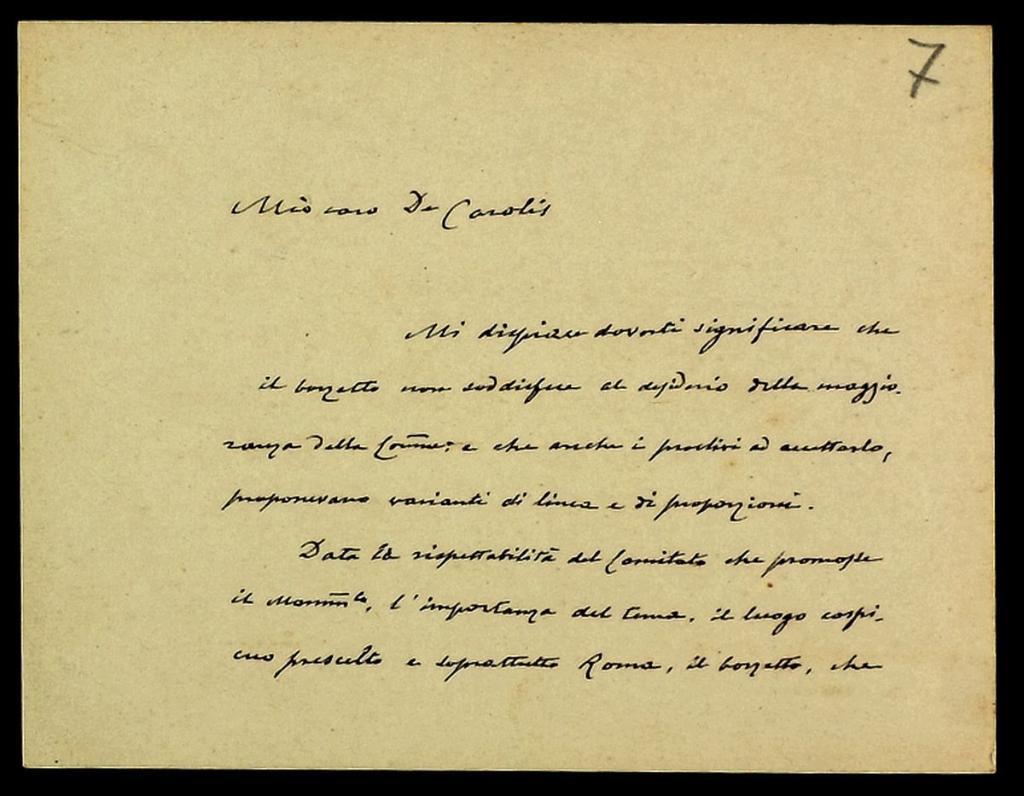 7
Mio caro De Carolis
Mi dispiace doverti significare che
il bozzetto non soddisfece al desiderio della maggio-
ranza della Comme: e che anche i proclivi ad accettarlo,
proponevano varianti di linea e di proporzioni.
Data la rispettabilità del Comitato che promosse
il Monumto, l'importanza del tema, il luogo cospi-
cuo prescelto e soprattutto Roma, il bozzetto, che